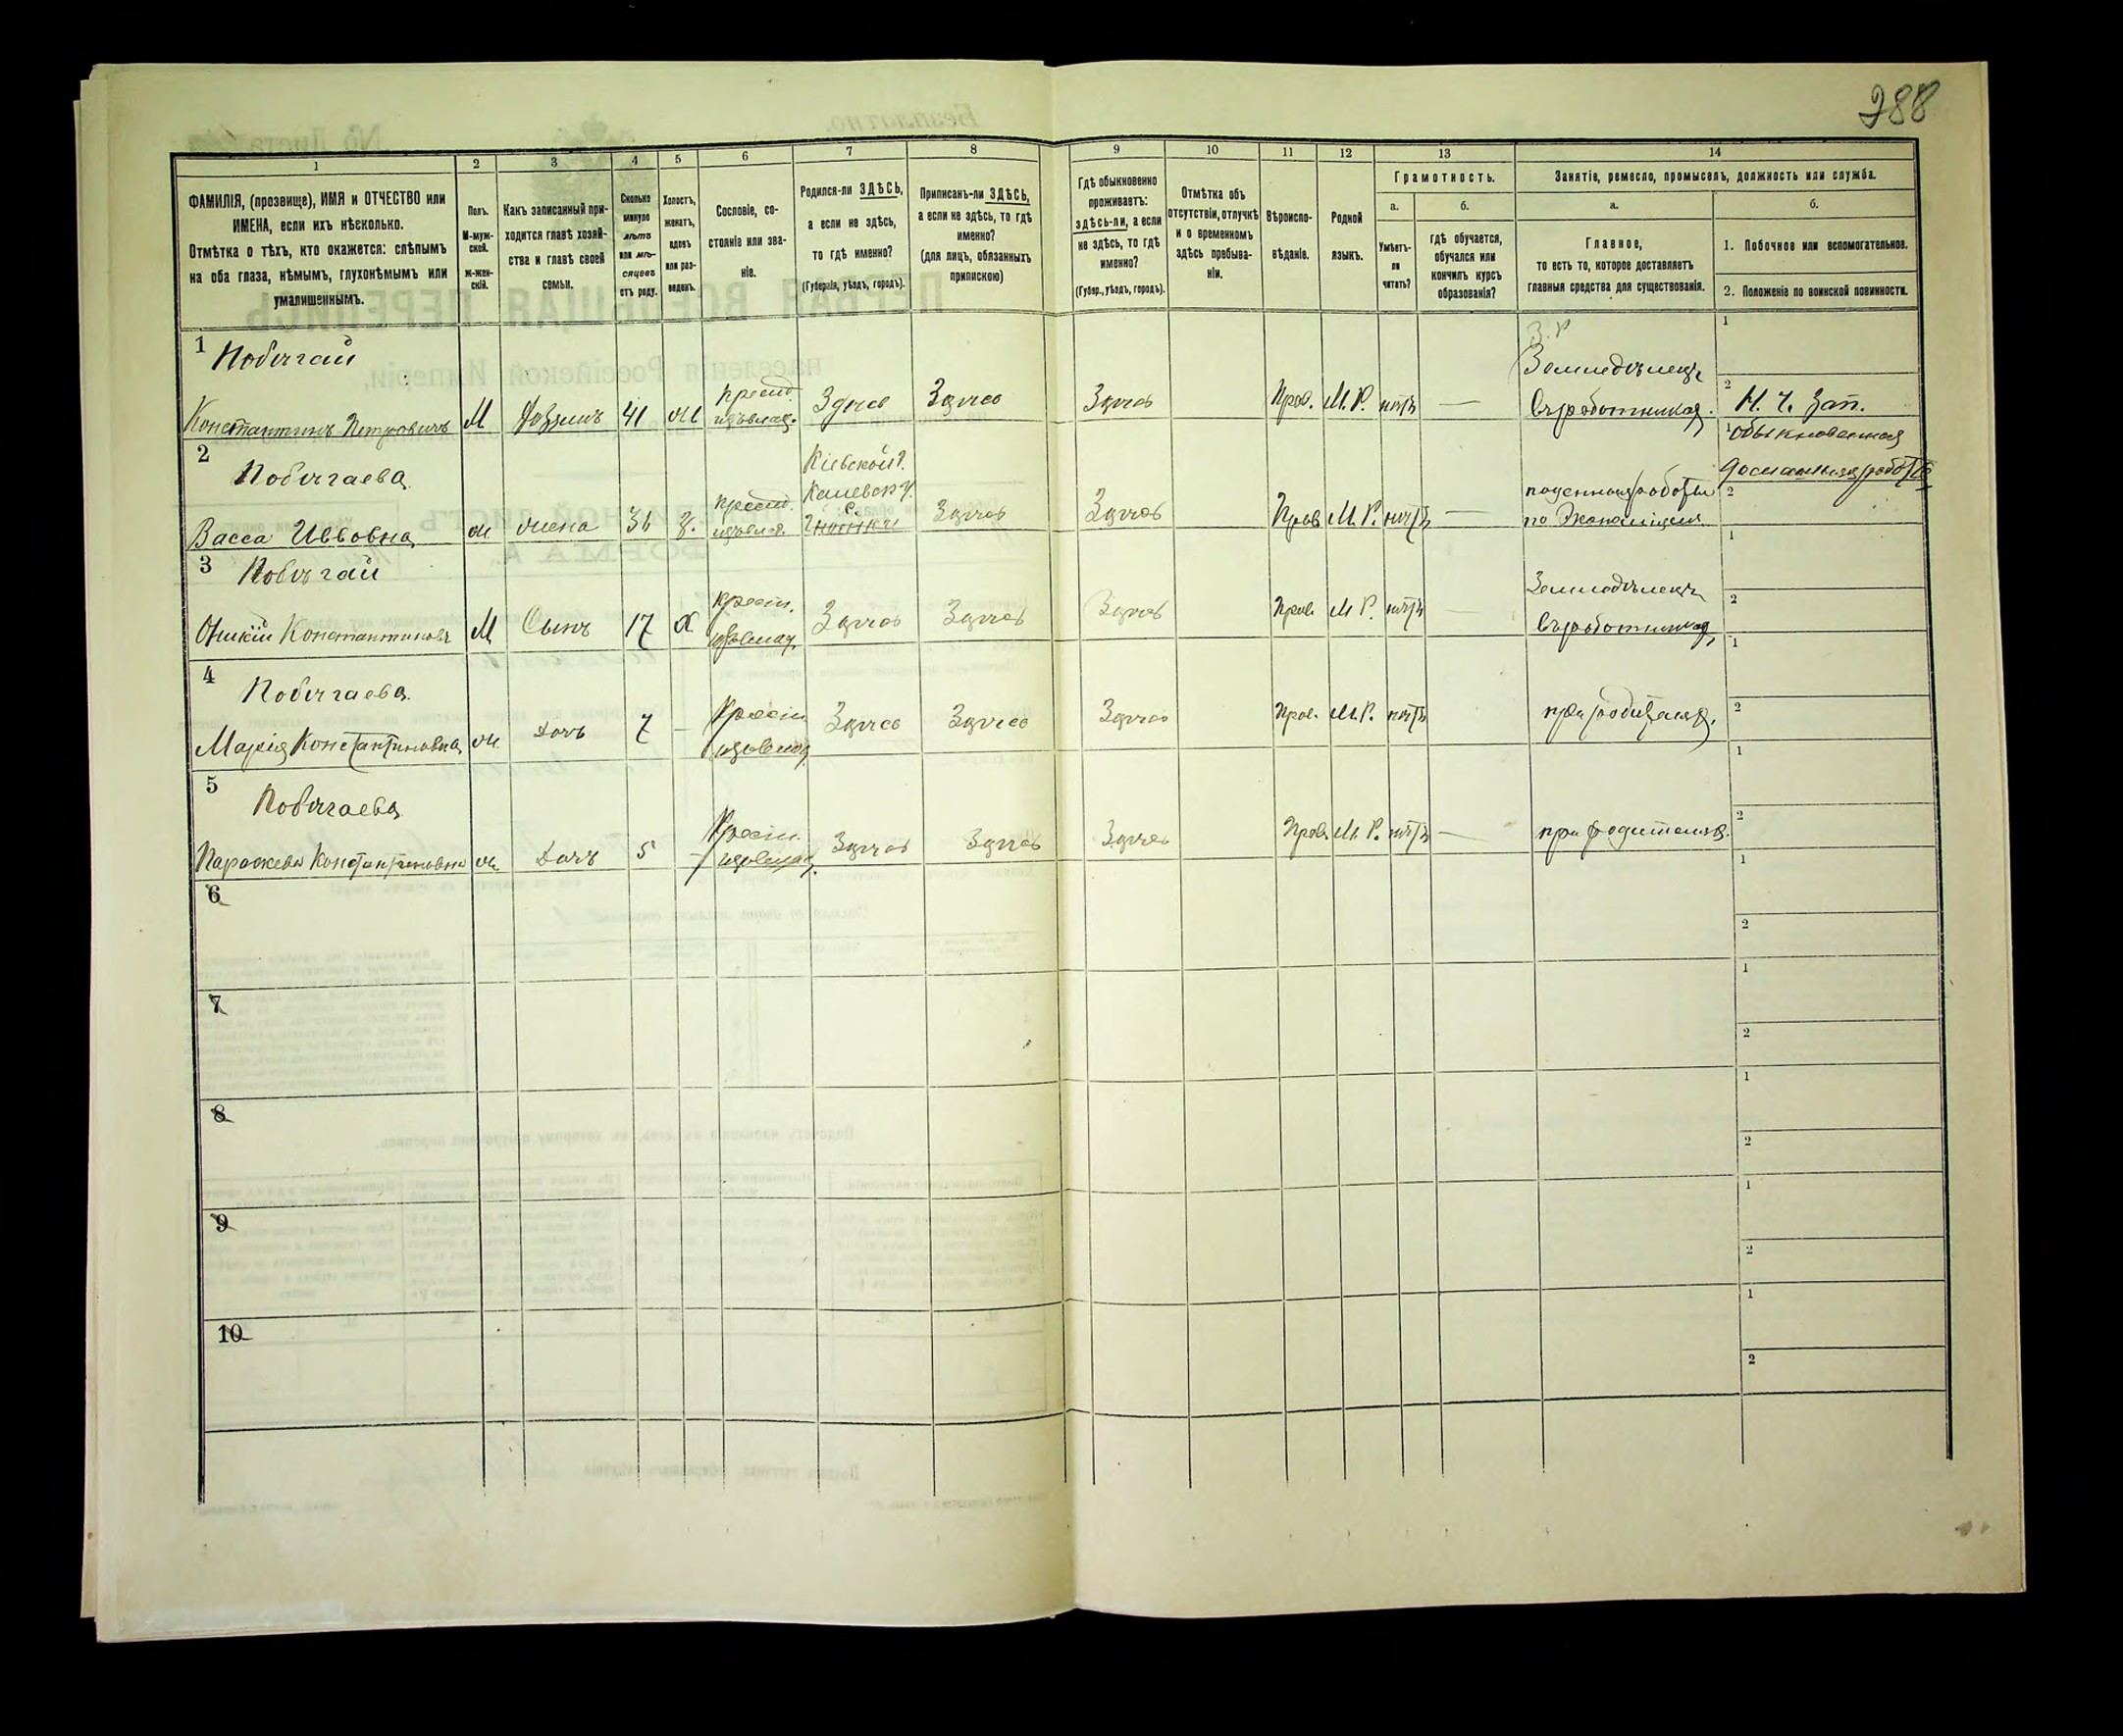 388
1
2
3
4
5
6
7
8
9
10
11
12
13
14
ФАМИЛІЯ, (прозвище), ИМЯ и ОТЧЕСТВО или
ИМЕНА, если ихъ нѣсколько.
Отмѣтка о тѣхъ, кто окажется: слѣпымъ
на оба глаза, нѣмымъ, глухонѣмымъ или
умалишеннымъ.
Полъ.
М-муж-
ской.
ж-жен-
скій.
Какъ записанный при-
ходится главѣ хозяй-
ства и главѣ своей
семьи.
Сколько
минуло
лѣтъ
или мѣ-
сяцевъ
отъ роду.
Холостъ,
женатъ,
вдовъ
или раз-
веденъ.
Сословіе, со-
стояніе или зва-
ніе.
Родился-ли ЗДѢСЬ,
а если не здѣсь,
то гдѣ именно?
(Губернія, уѣздъ, городъ).
Приписанъ-ли ЗДѢСЬ,
а если не здѣсь, то гдѣ
именно?
(для лицъ, обязанныхъ
припискою)
Гдѣ обыкновенно
проживаетъ:
здѣсь-ли, а если
не здѣсь, то гдѣ
именно?
(Губер., уѣздъ, городъ).
Отмѣтка объ
отсутствіи, отлучкѣ
и о временномъ
здѣсь пребыва-
ніи.
Вѣроиспо-
вѣданіе.
Родной
языкъ.
Грамотность.
а.
Умѣетъ-
ли
читать?
б.
гдѣ обучается,
обучался или
кончилъ курсъ
образованія?
Занятіе, ремесло, промыселъ, должность или служба.
а.
Главное,
то есть то, которое доставляетъ
главныя средства для существованія.
б.
1. Побочное или вспомогательное.
2. Положеніе по воинской повинности.
1 Побѣгай
Константинъ Петровичъ М Хозяинъ 41 ж Крест. Здѣсь Здѣсь Здѣсь Прав. М.Р. нѣтъ —
Земледѣлецъ
1
2 Н. Ч. Зап.
2 Побѣгаева
Васса Иввовна ж жена 36 З. Крест. Кіевской г. Каневск. у. Здѣсь Здѣсь Прав. М.Р. нѣтъ —
1 обыкновенная
2
3 Побѣгай
Оникій Константиновъ М Сынъ 17 Х Крест. Здѣсь Здѣсь Здѣсь Прав. М.Р. нѣтъ —
Земледѣлецъ
1
2
4 Побѣгаева
Марія Константиновна ж Дочь 7 — Крест. Здѣсь Здѣсь Здѣсь Прав. М.Р. нѣтъ при родителяхъ.
1
2
5 Побѣгаева
Параскева Константиновна ж Дочь 5 — Крест. Здѣсь Здѣсь Здѣсь Прав. М.Р. нѣтъ — при родителяхъ.
1
2
6
1
2
7
1
2
8
1
2
9
1
2
10
1
2